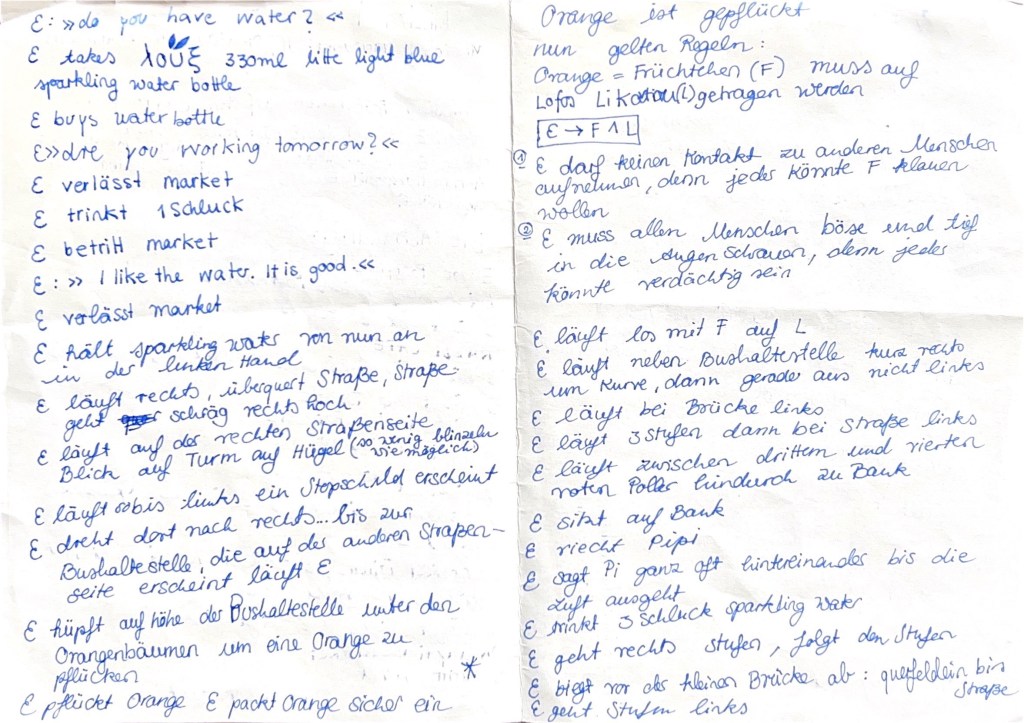 Ɛ: »do you have water? «
Ɛ takes λουξ 330ml litte light blue
sparkling water bottle
Ɛ buys water bottle
Ɛ»Are you working tomorrow?«
Ɛ verlässt market
Ɛ trinkt 1 Schluck
Ɛ betritt market
Ɛ: »I like the water. It is good.«
Ɛ verlässt market
Ɛ hält sparkling water von nun an
in der linken Hand
Ɛ läuft rechts, überquert Straße, Straße
geht schräg rechts hoch.
Ɛ läuft auf der rechten Straßenseite
Blick auf Turm auf Hügel (so wenig blinzeln
wie möglich)
Ɛ läuft bis links ein Stopschild erscheint
Ɛ dreht dort nach rechts... bis zur
Bushaltestelle, die auf der anderen Straßen-
seite erscheint läuft Ɛ
Ɛ hüpft auf höhe der Bushaltestelle unter den
Orangenbäumen um eine Orange zu
pflücken *
Ɛ pflückt Orange Ɛ packt Orange sicher ein
Orange ist gepflückt
nun gelten Regeln:
Orange = Früchtchen (F) muss auf
Lofos (L) getragen werden
Ɛ → F ∧ L
① Ɛ darf keinen Kontakt zu anderen Menschen
aufnehmen, denn jeder könnte F klauen
wollen
② Ɛ muss allen Menschen böse und tief
in die Augen schauen, denn jeder
könnte verdächtig sein
Ɛ läuft los mit F auf L
Ɛ läuft neben Bushaltestelle kurz rechts
um Kurve, dann gerade aus nicht links
Ɛ läuft bei Brücke links
Ɛ läuft 3 Stufen dann bei Straße links
Ɛ läuft zwischen drittem und vierten
roten Poller hindurch zu Bank
Ɛ sitzt auf Bank
Ɛ riecht Pipi
Ɛ sagt Pi ganz oft hintereinander bis die
Luft ausgeht
Ɛ trinkt 3 Schluck sparkling water
Ɛ geht rechts stufen, folgt den Stufen
Ɛ biegt vor der kleinen Brücke ab: querfeldein bis
Straße
Ɛ geht Stufen links